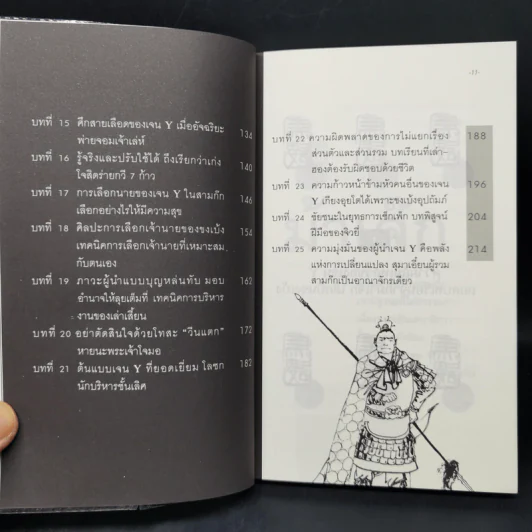 บทที่ 15 ศึกสายเลือดของเจน Y เมื่ออัจฉริยะ 134
พ่ายจอมเจ้าเล่ห์
บทที่ 16 รู้จริงและปรับใช้ได้ ถึงเรียกว่าเก่ง 140
โจสิดร่ายกวี 7 ก้าว
บทที่ 17 การเลือกนายของเจน Y ในสามก๊ก 146
เลือกอย่างไรให้มีความสุข
บทที่ 18 ศิลปะการเลือกเจ้านายของขงเบ้ง 154
เทคนิคการเลือกเจ้านายที่เหมาะสม
กับตนเอง
บทที่ 19 ภาวะผู้นำแบบบุญหล่นทับ มอบ 162
อำนาจให้ลุยเต็มที่ เทคนิคการบริหาร
งานของเล่าเสี้ยน
บทที่ 20 อย่าตัดสินใจด้วยโทสะ "วีนแตก" 172
หายนะพระเจ้าโจมอ
บทที่ 21 ต้นแบบเจน Y ที่ยอดเยี่ยม โลซก 182
นักบริหารชั้นเลิศ
-11-
บทที่ 22 ความผิดพลาดของการไม่แยกเรื่อง 188
ส่วนตัวและส่วนรวม บทเรียนที่เล่า-
สองต้องรับผิดชอบด้วยชีวิต
บทที่ 23 ความก้าวหน้าข้ามหัวคนอื่นของเจน 196
Y เกียงอุยโตได้เพราะขงเบ้งอุปถัมภ์
บทที่ 24 ชัยชนะในยุทธการเซ็กเพ็ก บทพิสูจน์ 204
ฝีมือของจิวยี่
บทที่ 25 ความมุ่งมั่นของผู้นำเจน Y คือพลัง 214
แห่งการเปลี่ยนแปลง สุมาเอี๋ยนผู้รวม
สามก๊กเป็นอาณาจักรเดียว